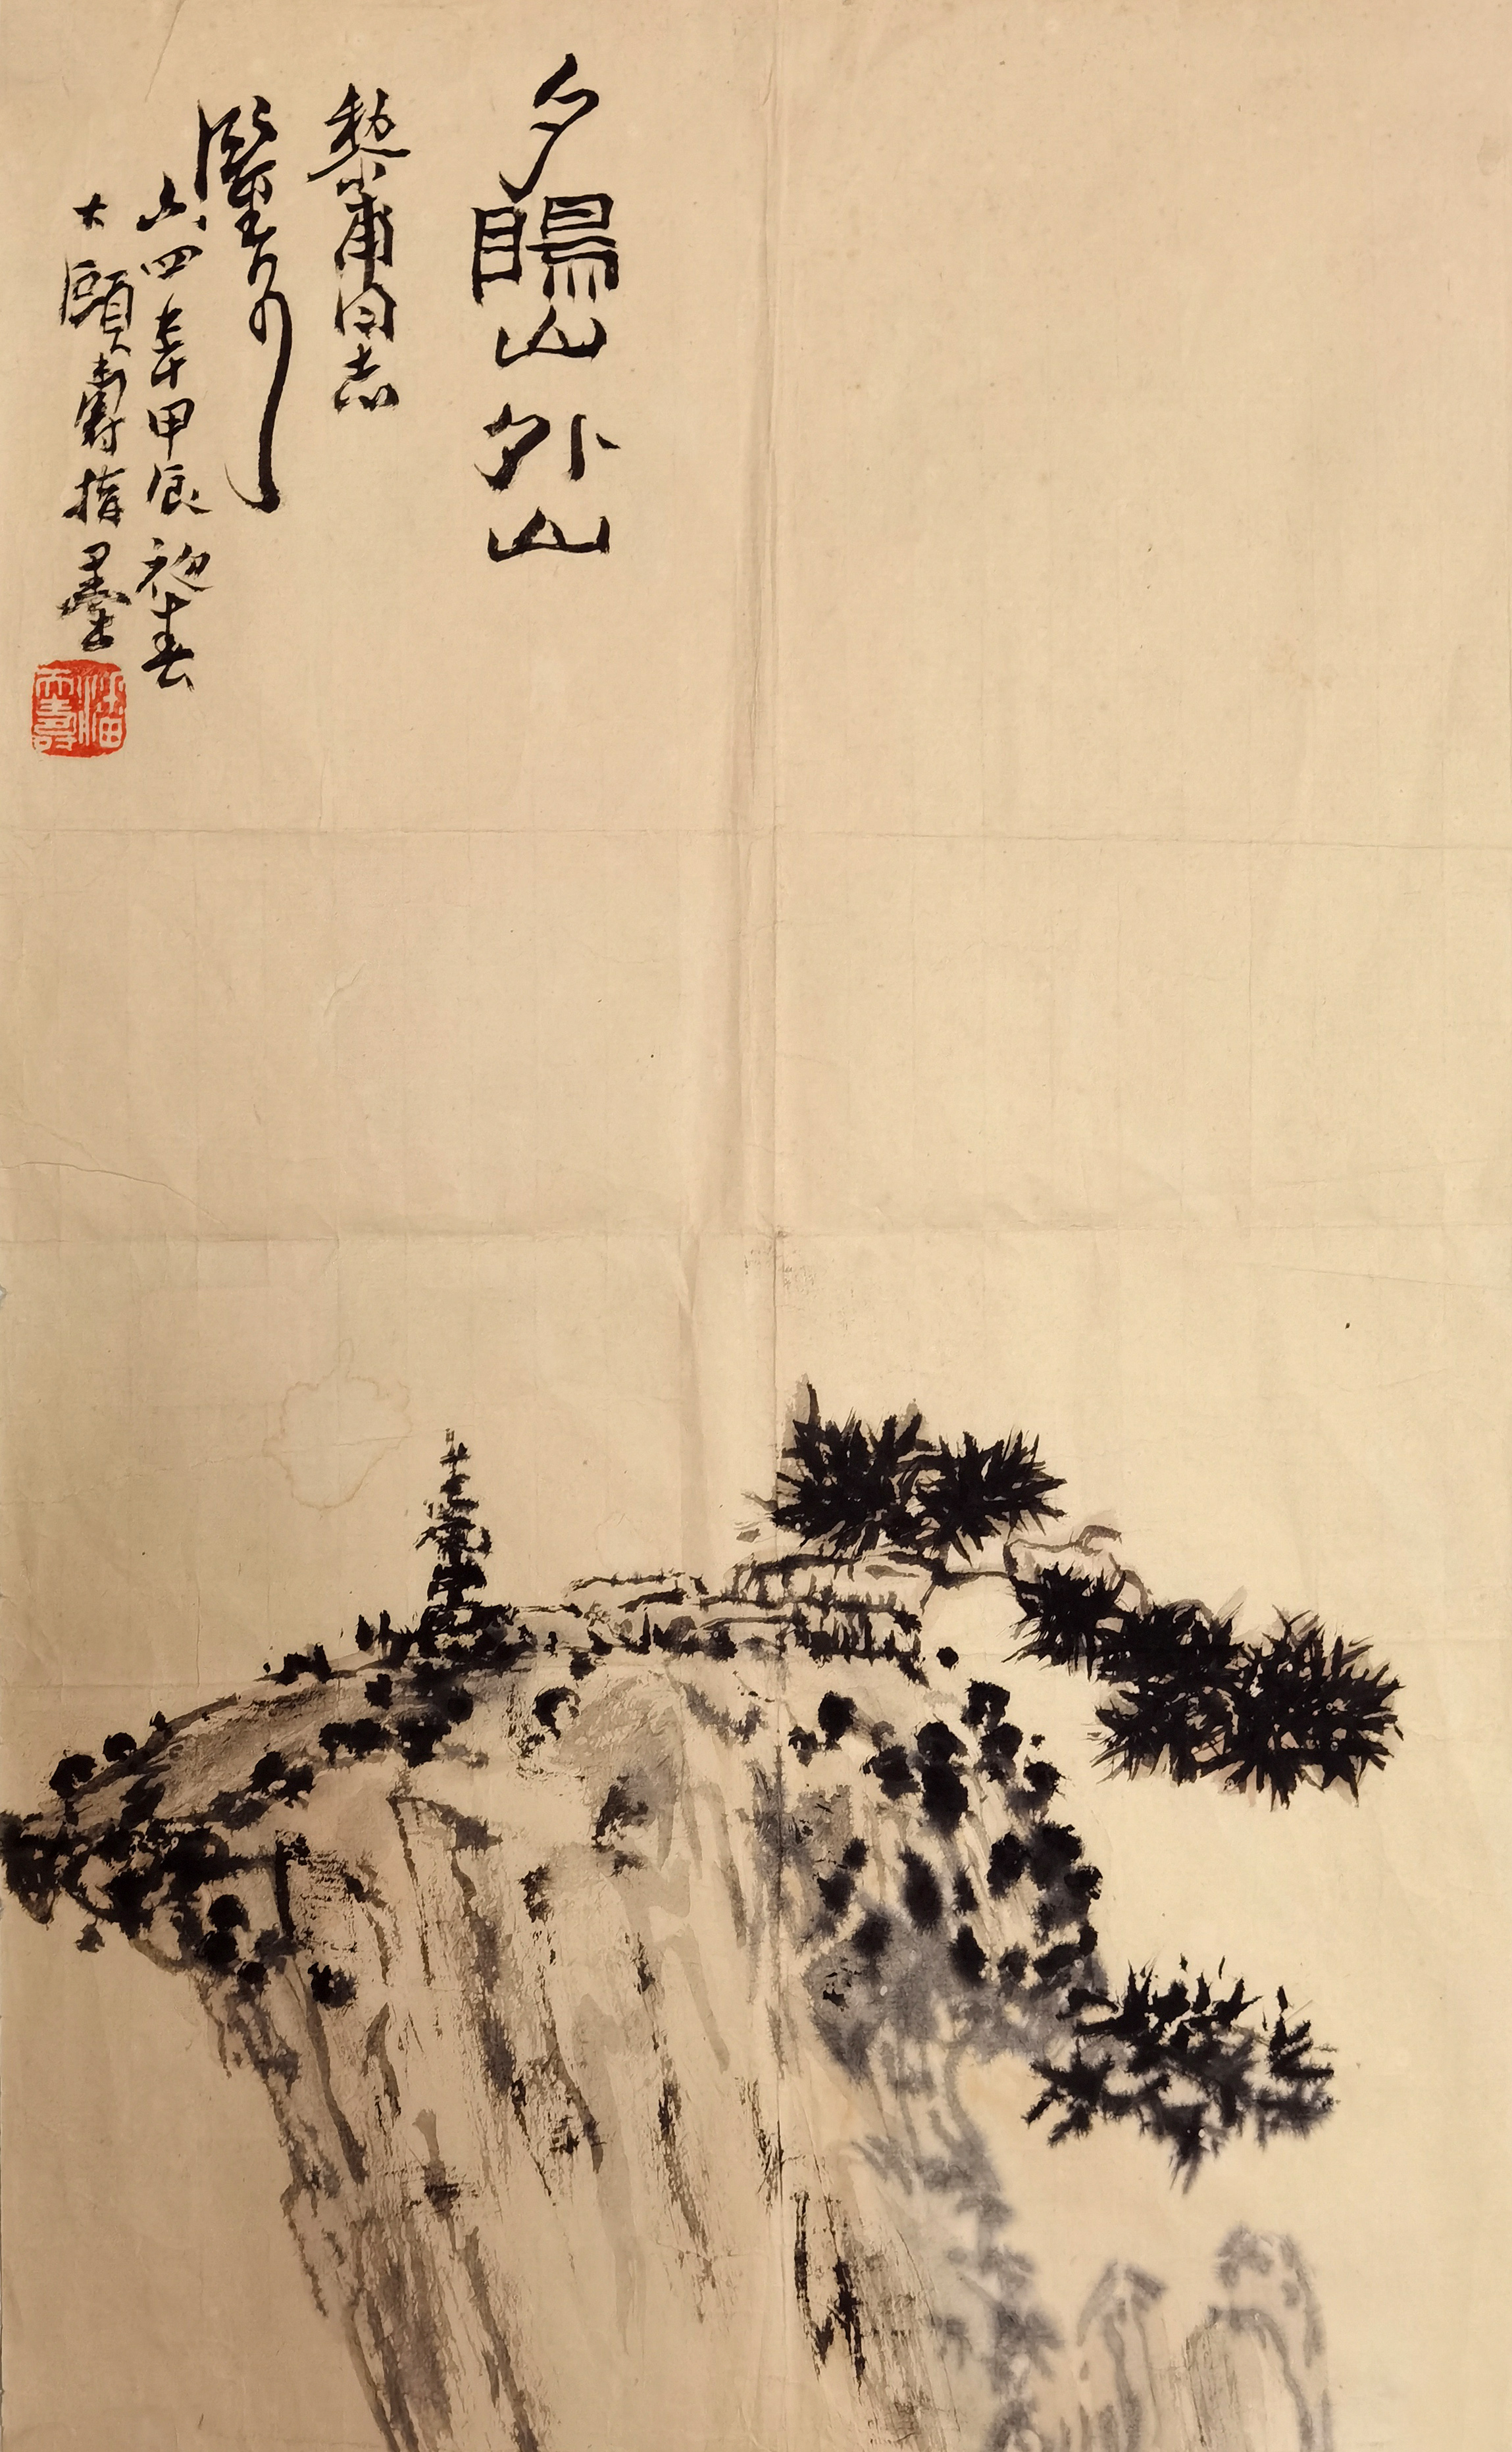 夕陽山外山
黎甫同志
鑒
六四年甲辰初春
大頤壽指墨
潘天壽